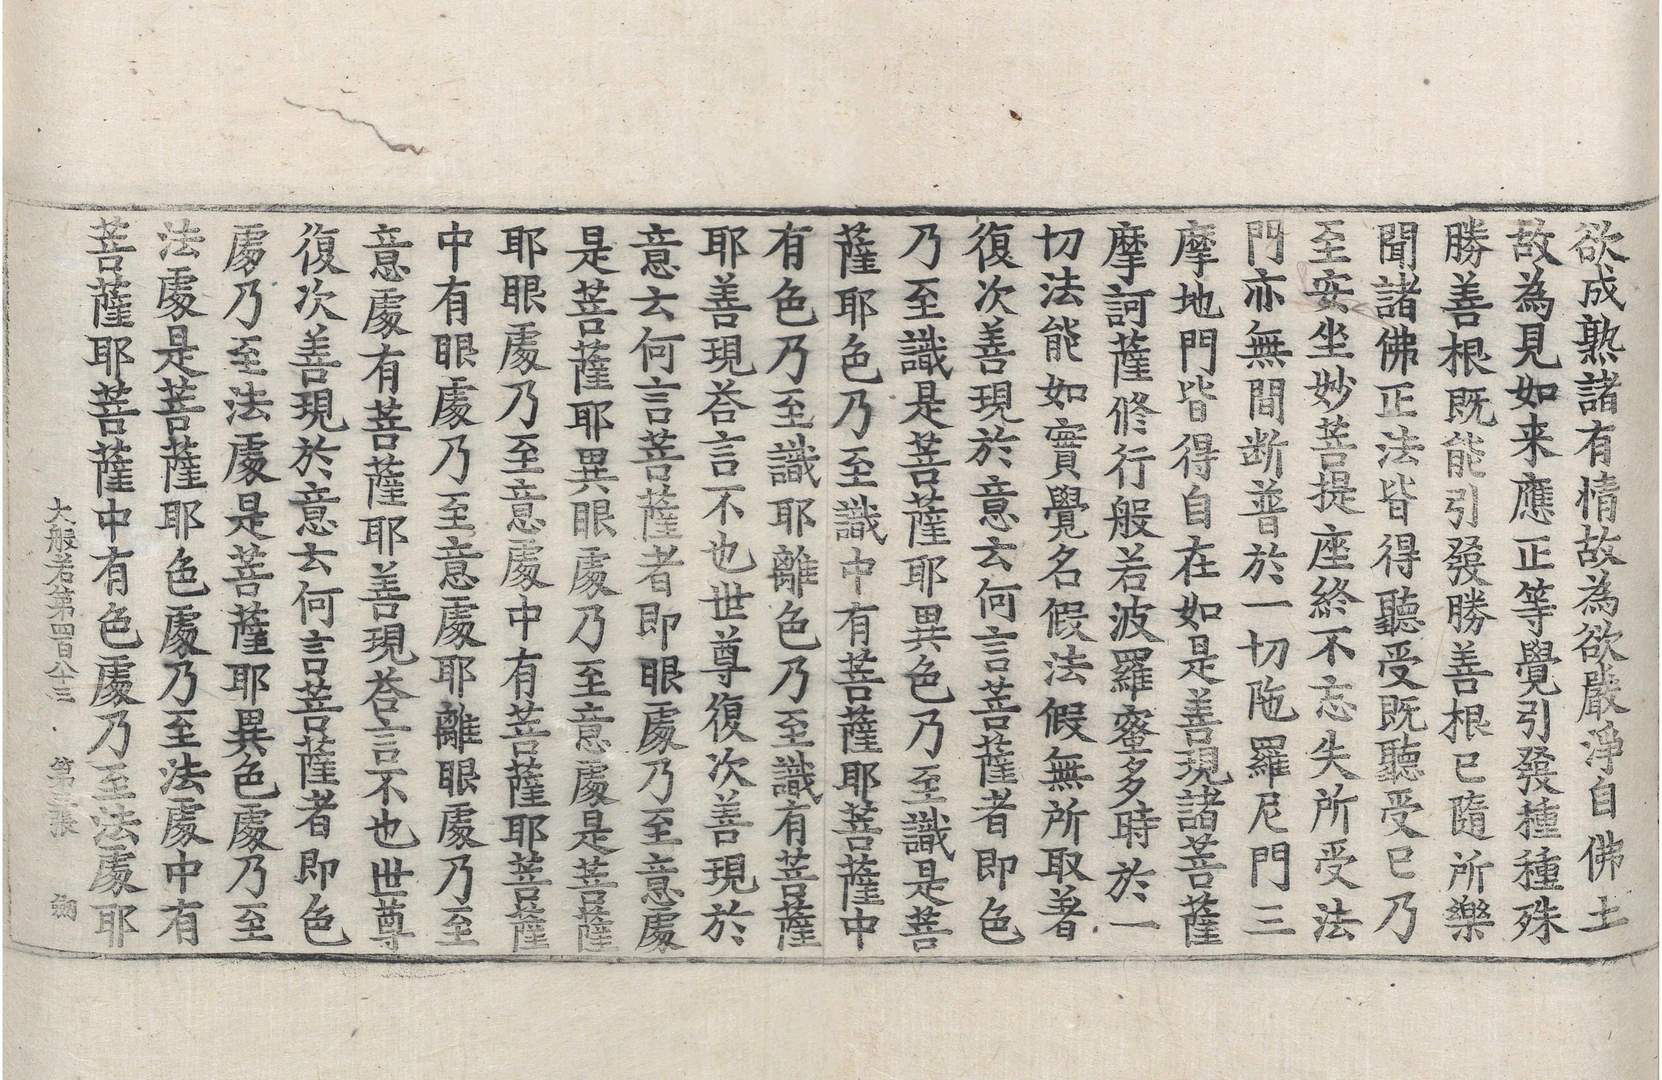 欲成熟諸有情故為欲嚴淨自佛土
故為見如来應正等覺引發種種殊
勝善根既能引發勝善根已隨所樂
聞諸佛正法皆得聽受既聽受已乃
至安坐妙菩提座終不忘失所受法
門亦無間断普於一切陁羅尼門三
摩地門皆得自在如是善現諸菩薩
摩訶薩修行般若波羅蜜多時於一
切法能如實覺名假法假無所取著
復次善現於意云何言菩薩者即色
乃至識是菩薩耶異色乃至識是菩
薩耶色乃至識中有菩薩耶菩薩中
有色乃至識耶離色乃至識有菩薩
耶善現荅言不也世尊復次善現於
意云何言菩薩者即眼處乃至意處
是菩薩耶異眼處乃至意處是菩薩
耶眼處乃至意處中有菩薩耶菩薩
中有眼處乃至意處耶離眼處乃至
意處有菩薩耶善現荅言不也世尊
復次善現於意云何言菩薩者即色
處乃至法處是菩薩耶異色處乃至
法處是菩薩耶色處乃至法處中有
菩薩耶菩薩中有色處乃至法處耶
大般若第四百八十三 第 張